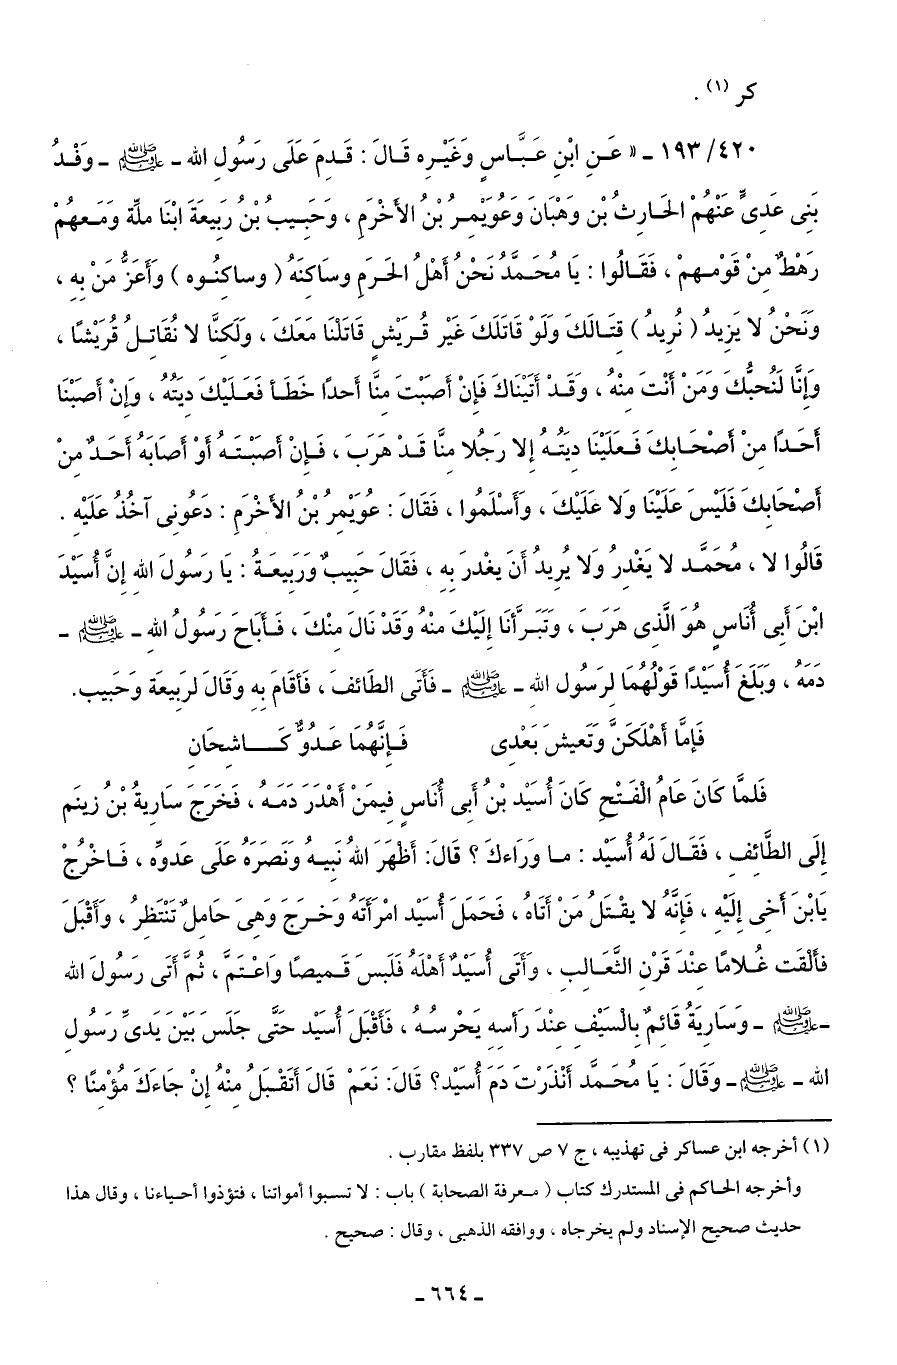 كر (١) .
١٩٣/٤٢٠ ـ « عَنِ ابْنِ عَبَّاسٍ وَغَيْرِه قَالَ : قَدِمَ عَلَى رَسُولِ الله ـ ﷺ ـ وَفْدُ
بَنِى عَدِىٍّ عَنْهُمْ الحَارِثُ بْن وَهْبَانَ وَعُوَيْمِرُ بْنُ الأَخْرَمِ ، وَحَبِيبُ بْنُ رَبِيعَةَ ابْنَا مِلَّةَ وَمَعهُمْ
رَهْطٌ مِنْ قَوْمِهِمْ ، فَقَالُوا : يَا مُحَمَّدُ نَحْنُ أَهْلُ الحَرَمِ وسَاكِنَهُ ( وساكنُوه ) وَأَعَزُّ مَنْ بِهِ ،
وَنَحْنُ لا يَزيدُ ( نُرِيدُ ) قِتَالَكَ وَلَوْ قَاتَلَكَ غَيْر قُرَيْشٍ قَاتَلْنَا مَعَكَ ، وَلَكِنَّا لا نُقَاتِلُ قُرَيْشًا ،
وَإِنَّا لَنُحبُّكَ وَمَنْ أَنْتَ مِنْهُ ، وَقَدْ أَتَيْنَاكَ فَإِنْ أَصَبْتَ مِنَّا أَحدًا خَطَأً فَعَلَيْكَ دِيَتُهُ ، وَإِنْ أَصَبْنَا
أَحَدًا مِنْ أَصْحَابِكَ فَعَلَيْنَا دِيَتُهِ إِلا رَجُلا مِنَّا قَدْ هَرَبَ ، فَإِنْ أَصَبْتَهُ أَوْ أَصَابَهُ أَحَدٌ مِنْ
أَصْحَابِكَ فَلَيْسَ عَلَيْنَا وَلا عَلَيْكَ ، وَأَسْلَمُوا ، فَقَالَ : عُوَيْمِرُ بْنُ الأَخْرَمِ : دَعُونِى آخُذُ عَلَيْهِ .
قَالُوا لا ، مُحَمَّد لا يَغْدِرُ وَلا يُرِيدُ أَنَ يغْدَرَ بِهِ ، فَقَالَ حَبِيبٌ وَرَبِيعَةُ : يَا رَسُولَ الله إِنَّ أُسَيْدَ
ابْنَ أَبِى أُنَاسٍ هُوَ الَّذِى هَرَبَ ، وَتَبَرَّأنَا إِلَيْكَ مِنْهُ وَقَدْ نَالَ مِنْكَ ، فَأَبَاحَ رَسُولُ الله ـ ﷺ ـ
دَمَهُ ، وَبَلَغَ أُسَيْدًا قَوْلُهُمَا لِرَسُولِ الله ـ ﷺ ـ فَأَتَى الطَّائِفَ ، فَأَقَامَ بِهِ وَقَالَ لِرَبِيعَةَ وَحَبِيبٍ.
فَإِمَّا أَهْلَكَنَّ وَتَعِيشَ بَعْدِى فَإِنَّهُمَا عَدُوٌّ كَـاشِحَانِ
فَلَمَّا كَانَ عَامُ الْفَتْحِ كَانَ أُسَيْد بْنُ أَبِى أُنَاسٍ فِيمَنْ أَهْدَرَ دَمَهُ ، فَخَرَجَ سَارِيةُ بْنُ زِينَمٍ
إِلَى الطَّائِفِ ، فَقَالَ لَهُ أُسَيْد : مَا وَرَاءَكَ ؟ قَالَ: أَظْهَرَ اللهُ نَبِيهُ وَنَصَرَهُ عَلَى عَدوِّهِ ، فَاخْرُجْ
يَابْنَ أَخِى إِلَيْهِ ، فَإِنَّهُ لا يقْتلُ مَنْ أَتَاهُ ، فَحَمَلَ أُسَيْد امْرَأَتَهُ وَخَرَجَ وَهِىَ حَامِلٌ تَنْتَظِرُ ، وَأَقْبَلَ
فَأَلْقَت غُلامًا عِنْدَ قَرْنِ الثَّعَالِبِ ، وَأَتَى أُسَيْدٌ أَهْلَهُ فَلَبِسَ قَمِيصًا وَاعْتَمَّ ، ثُمَّ أَتَى رَسُولَ الله
ـ ﷺ ـ وَسَارِيَةُ قَائِمٌ بِالسَّيْفِ عِنْدَ رَأسِهِ يَحْرسُهُ ، فَأَقْبَلَ أُسَيْد حَتَّى جَلَسَ بَيْنَ يَدَىْ رَسُولِ
الله ـ ﷺ ـ وَقَالَ : يَا مُحَمَّد أَنْذَرْتَ دَمَ أُسَيْد؟ قَالَ: نَعَمْ قَالَ أَتَقْبَلُ مِنْهُ إِنْ جَاءَكَ مُؤْمِنًا ؟
(١) أخرجه ابن عساكر فى تهذيبه ، ج ٧ ص ٣٣٧ بلفظ مقارب .
وأخرجه الحاكم فى المستدرك كتاب ( معرفة الصحابة ) باب : لا تسبوا أمواتنا ، فتؤذوا أحياءنا ، وقال هذا
حديث صحيح الإسناد ولم يخرجاه ، ووافقه الذهبى ، وقال : صحيح .
ـ ٦٦٤ ـ